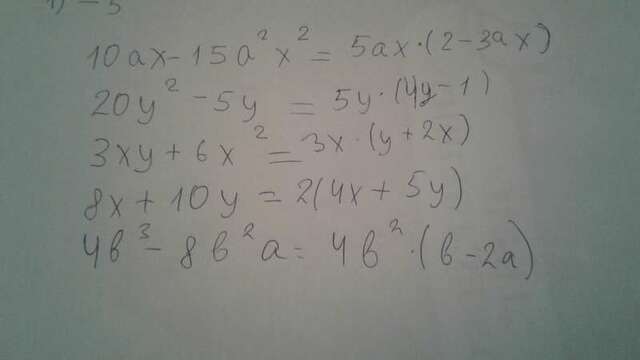 10ax-15a²x²=5ax·(2-3ax)
20y²-5y=5y·(4y-1)
3xy+6x²=3x·(y+2x)
8x+10y=2(4x+5y)
4b³-8b²a=4b²·(b-2a)